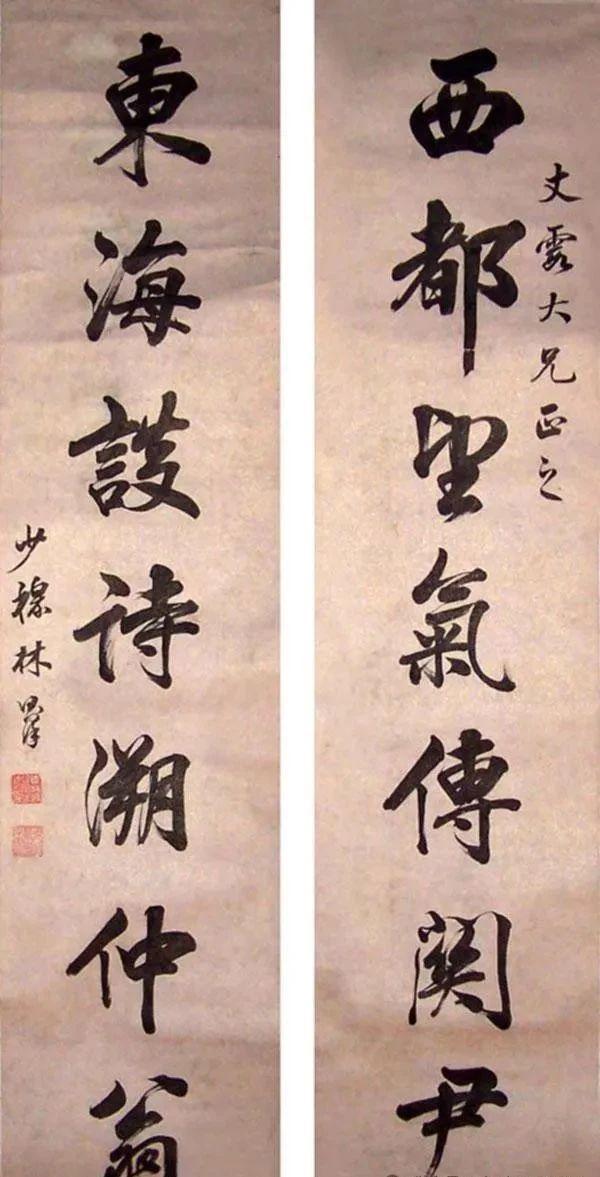 西都望氣傳關尹
大兄正之
東海詩溯仲翁
少穆林則徐